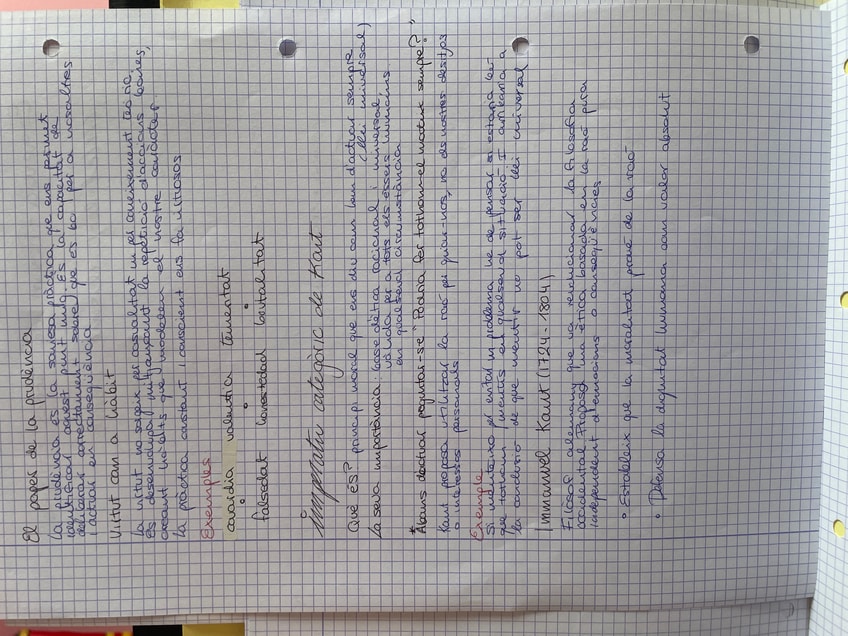 El paper de la prudència
La prudència és la saviesa pràctica que ens permet
identificar aquest punt mig. És la capacitat de
deliberar correctament sobre el que és bo per a nosaltres
i actuar en conseqüència
Virtut com a hàbit
La virtut no sorgeix per casualitat ni per coneixement teòric,
és desenvolupa mitjançant la repetició d'accions bones,
creant hàbits que modelen el nostre caràcter.
La pràctica constant i conscient ens fa virtuosos
Exemples
covardia valentia temeritat
falsedat honestedat brutalitat
Imperatiu categòric de Kant
Què és? principi moral que ens diu com hem d'actuar sempre
(llei universal)
La seva importància: base d'ètica racional i universal,
vàlida per a tots els éssers humans
en qualsevol circumstància
"Abans d'actuar preguntar-se "Podria fer tothom el mateix sempre?"
Kant proposa utilitzar la raó per guiar-nos, no els nostres desitjos
o interessos personals
Exemple
Si mentero per evitar un problema he de pensar si estaria bé
que tothom mentís en qualsevol situació I arribaria a
la conclusió de que mentir no pot ser llei universal
Immanuel Kant (1724-1804)
Filòsof alemany que va revolucionar la filosofia
occidental. Proposà una ètica basada en la raó pura
independent d'emocions o conseqüències
• Estableix que la moralitat prové de la raó
• Defensa la dignitat humana com valor absolut